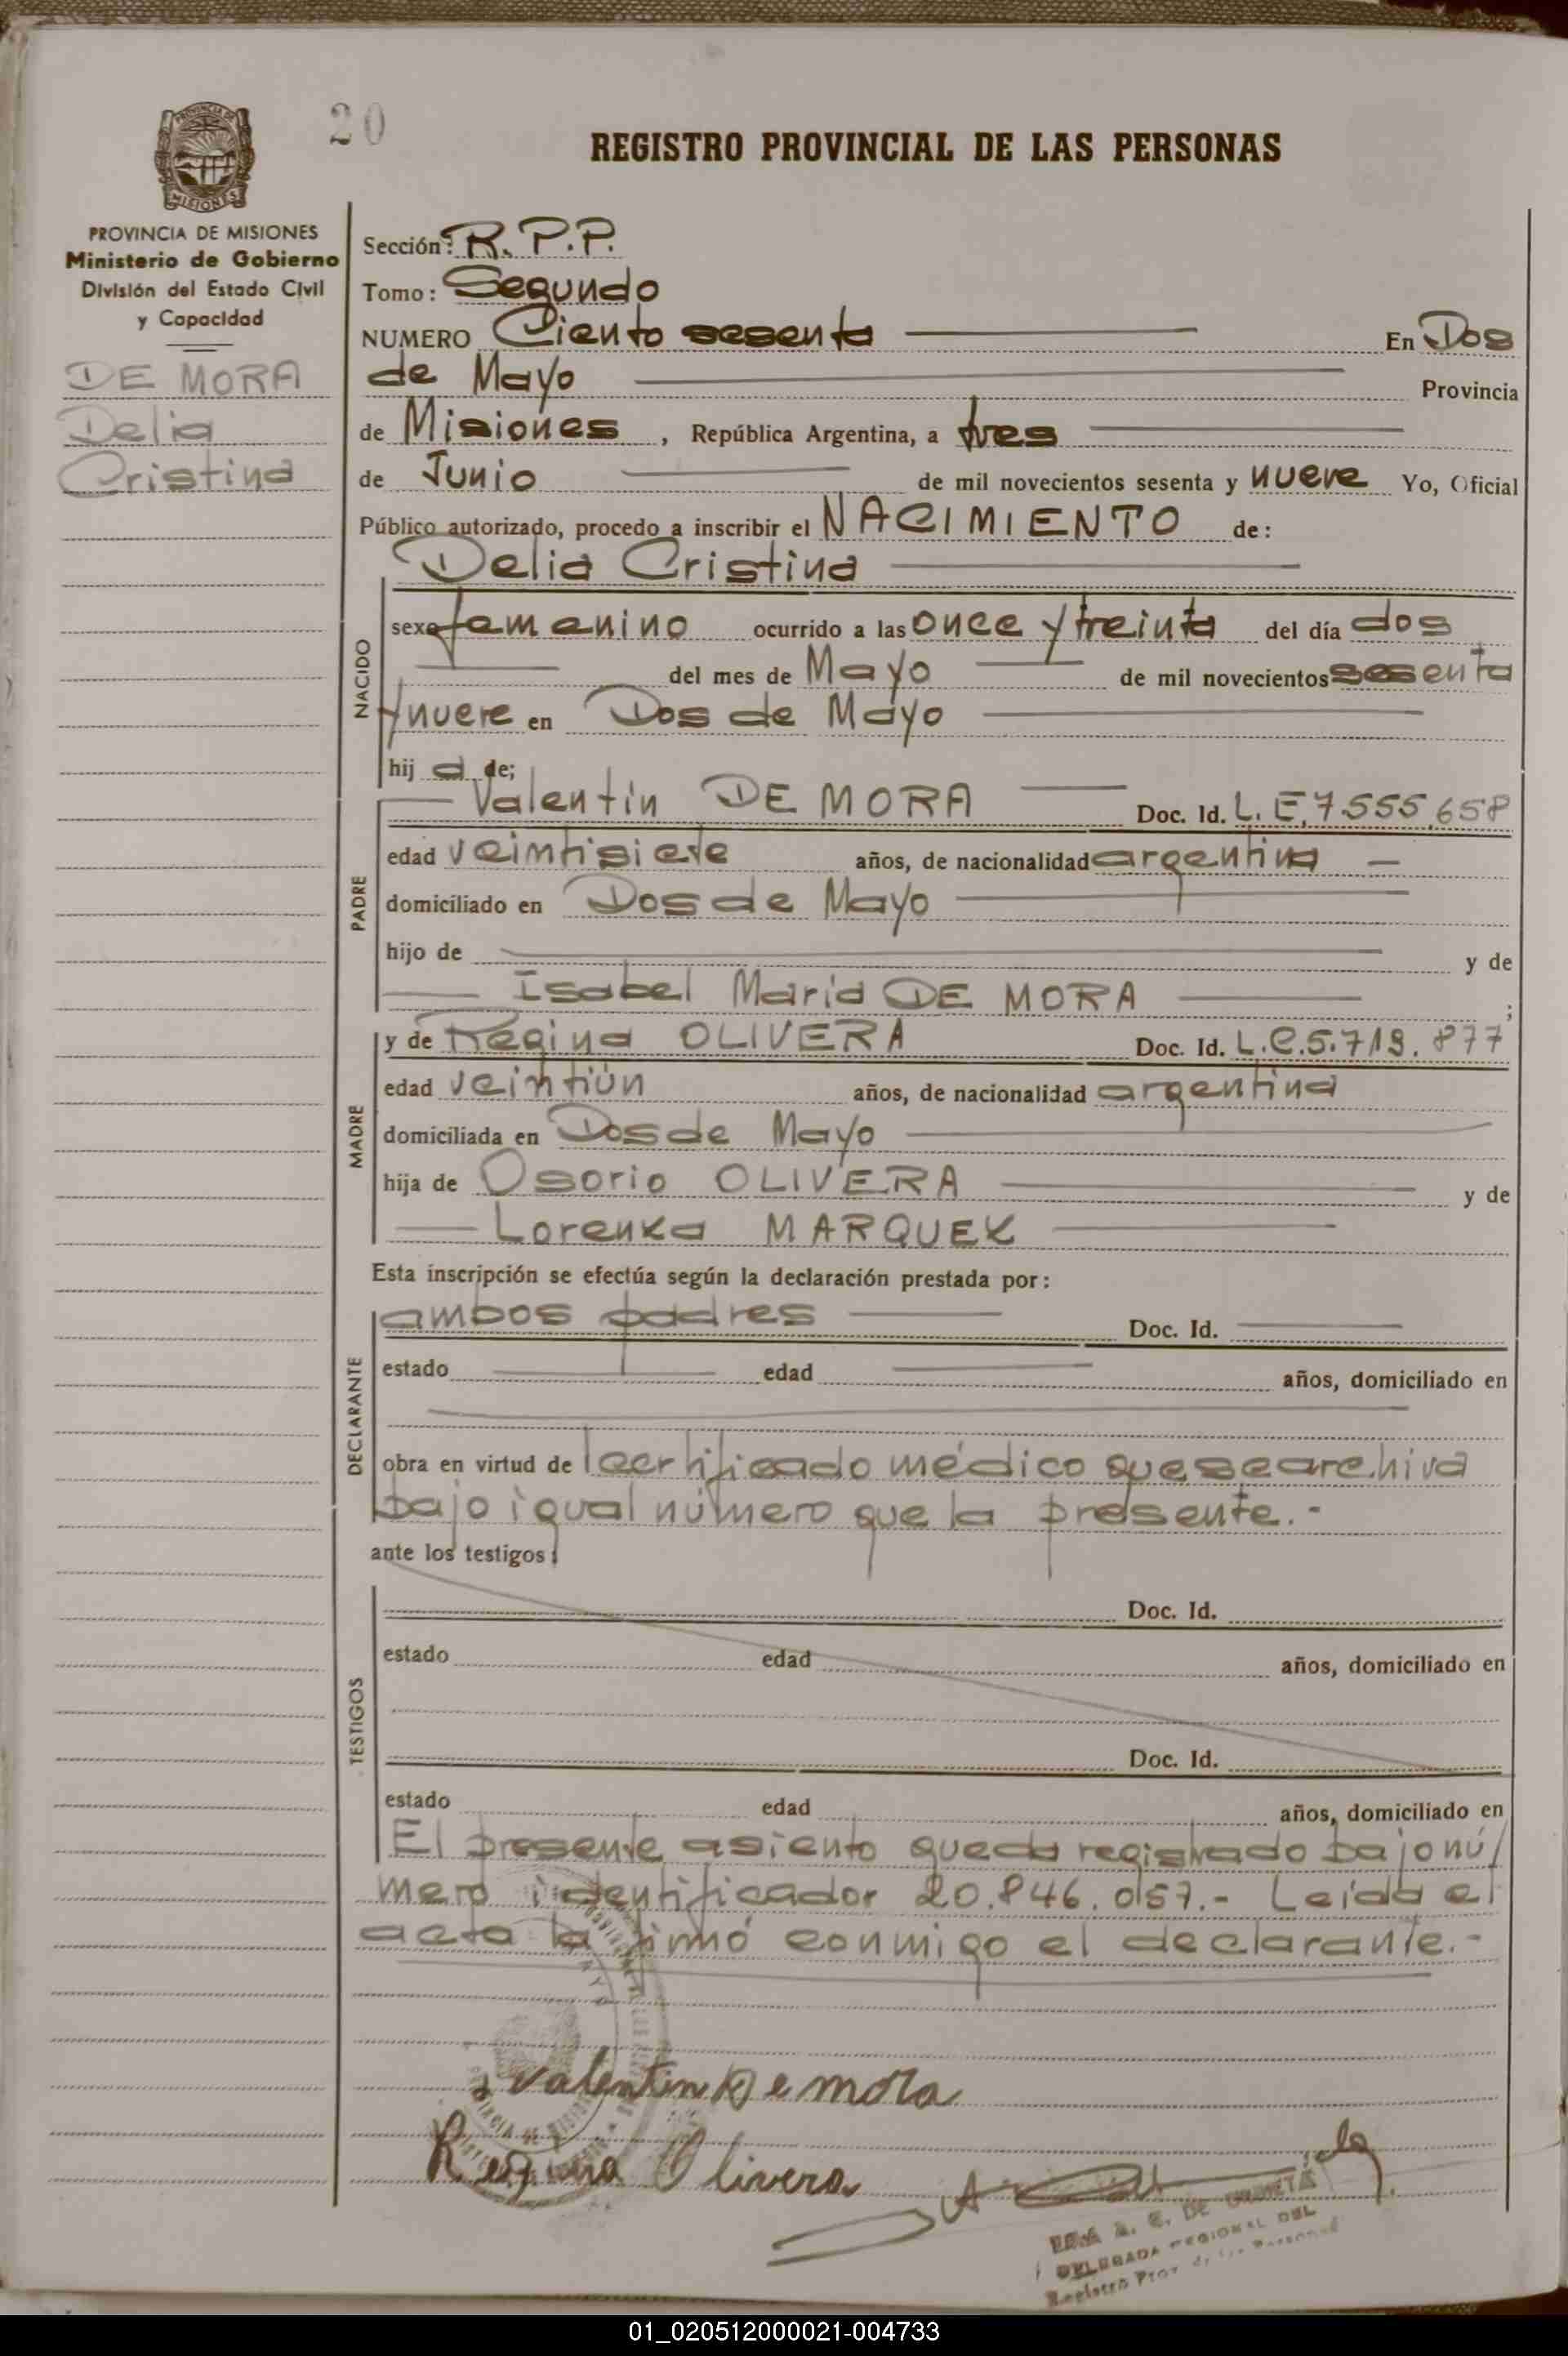 20
REGISTRO PROVINCIAL DE LAS PERSONAS
PROVINCIA DE
MISIONES
PROVINCIA DE MISIONES
Ministerio de Gobierno
División del Estado Civil
y Capacidad
DE MORA
Delia
Cristina
Sección: R. P. P.
Tomo: Segundo
NUMERO Ciento sesenta En Dos
de Mayo Provincia
de Misiones, República Argentina, a tres
de Junio de mil novecientos sesenta y nueve Yo, Oficial
Público autorizado, procedo a inscribir el NACIMIENTO de:
Delia Cristina
NACIDO
sexo femenino ocurrido a las once y treinta del día dos
del mes de Mayo de mil novecientos sesenta
y nueve en Dos de Mayo
hij a de;
PADRE
Valentín DE MORA Doc. Id. L. E. 7.555.658
edad veintisiete años, de nacionalidad argentina
domiciliado en Dos de Mayo
hijo de y de
Isabel María DE MORA ;
MADRE
y de Regina OLIVERA Doc. Id. L.C. 5.719.877
edad veintiún años, de nacionalidad argentina
domiciliada en Dos de Mayo
hija de Osorio OLIVERA y de
Lorenza MARQUEZ
Esta inscripción se efectúa según la declaración prestada por:
DECLARANTE
ambos padres Doc. Id.
estado edad años, domiciliado en
obra en virtud de certificado médico que se archiva
bajo igual número que la presente.-
ante los testigos:
TESTIGOS
Doc. Id.
estado edad años, domiciliado en
Doc. Id.
estado edad años, domiciliado en
El presente asiento queda registrado bajo nú/
mero identificador 20.846.057.- Leída el
acta la firmó conmigo el declarante.-
Valentin De mora
Regina Olivera
DELEGADA REGIONAL DEL
Registro Prov. de las Personas
01_020512000021-004733